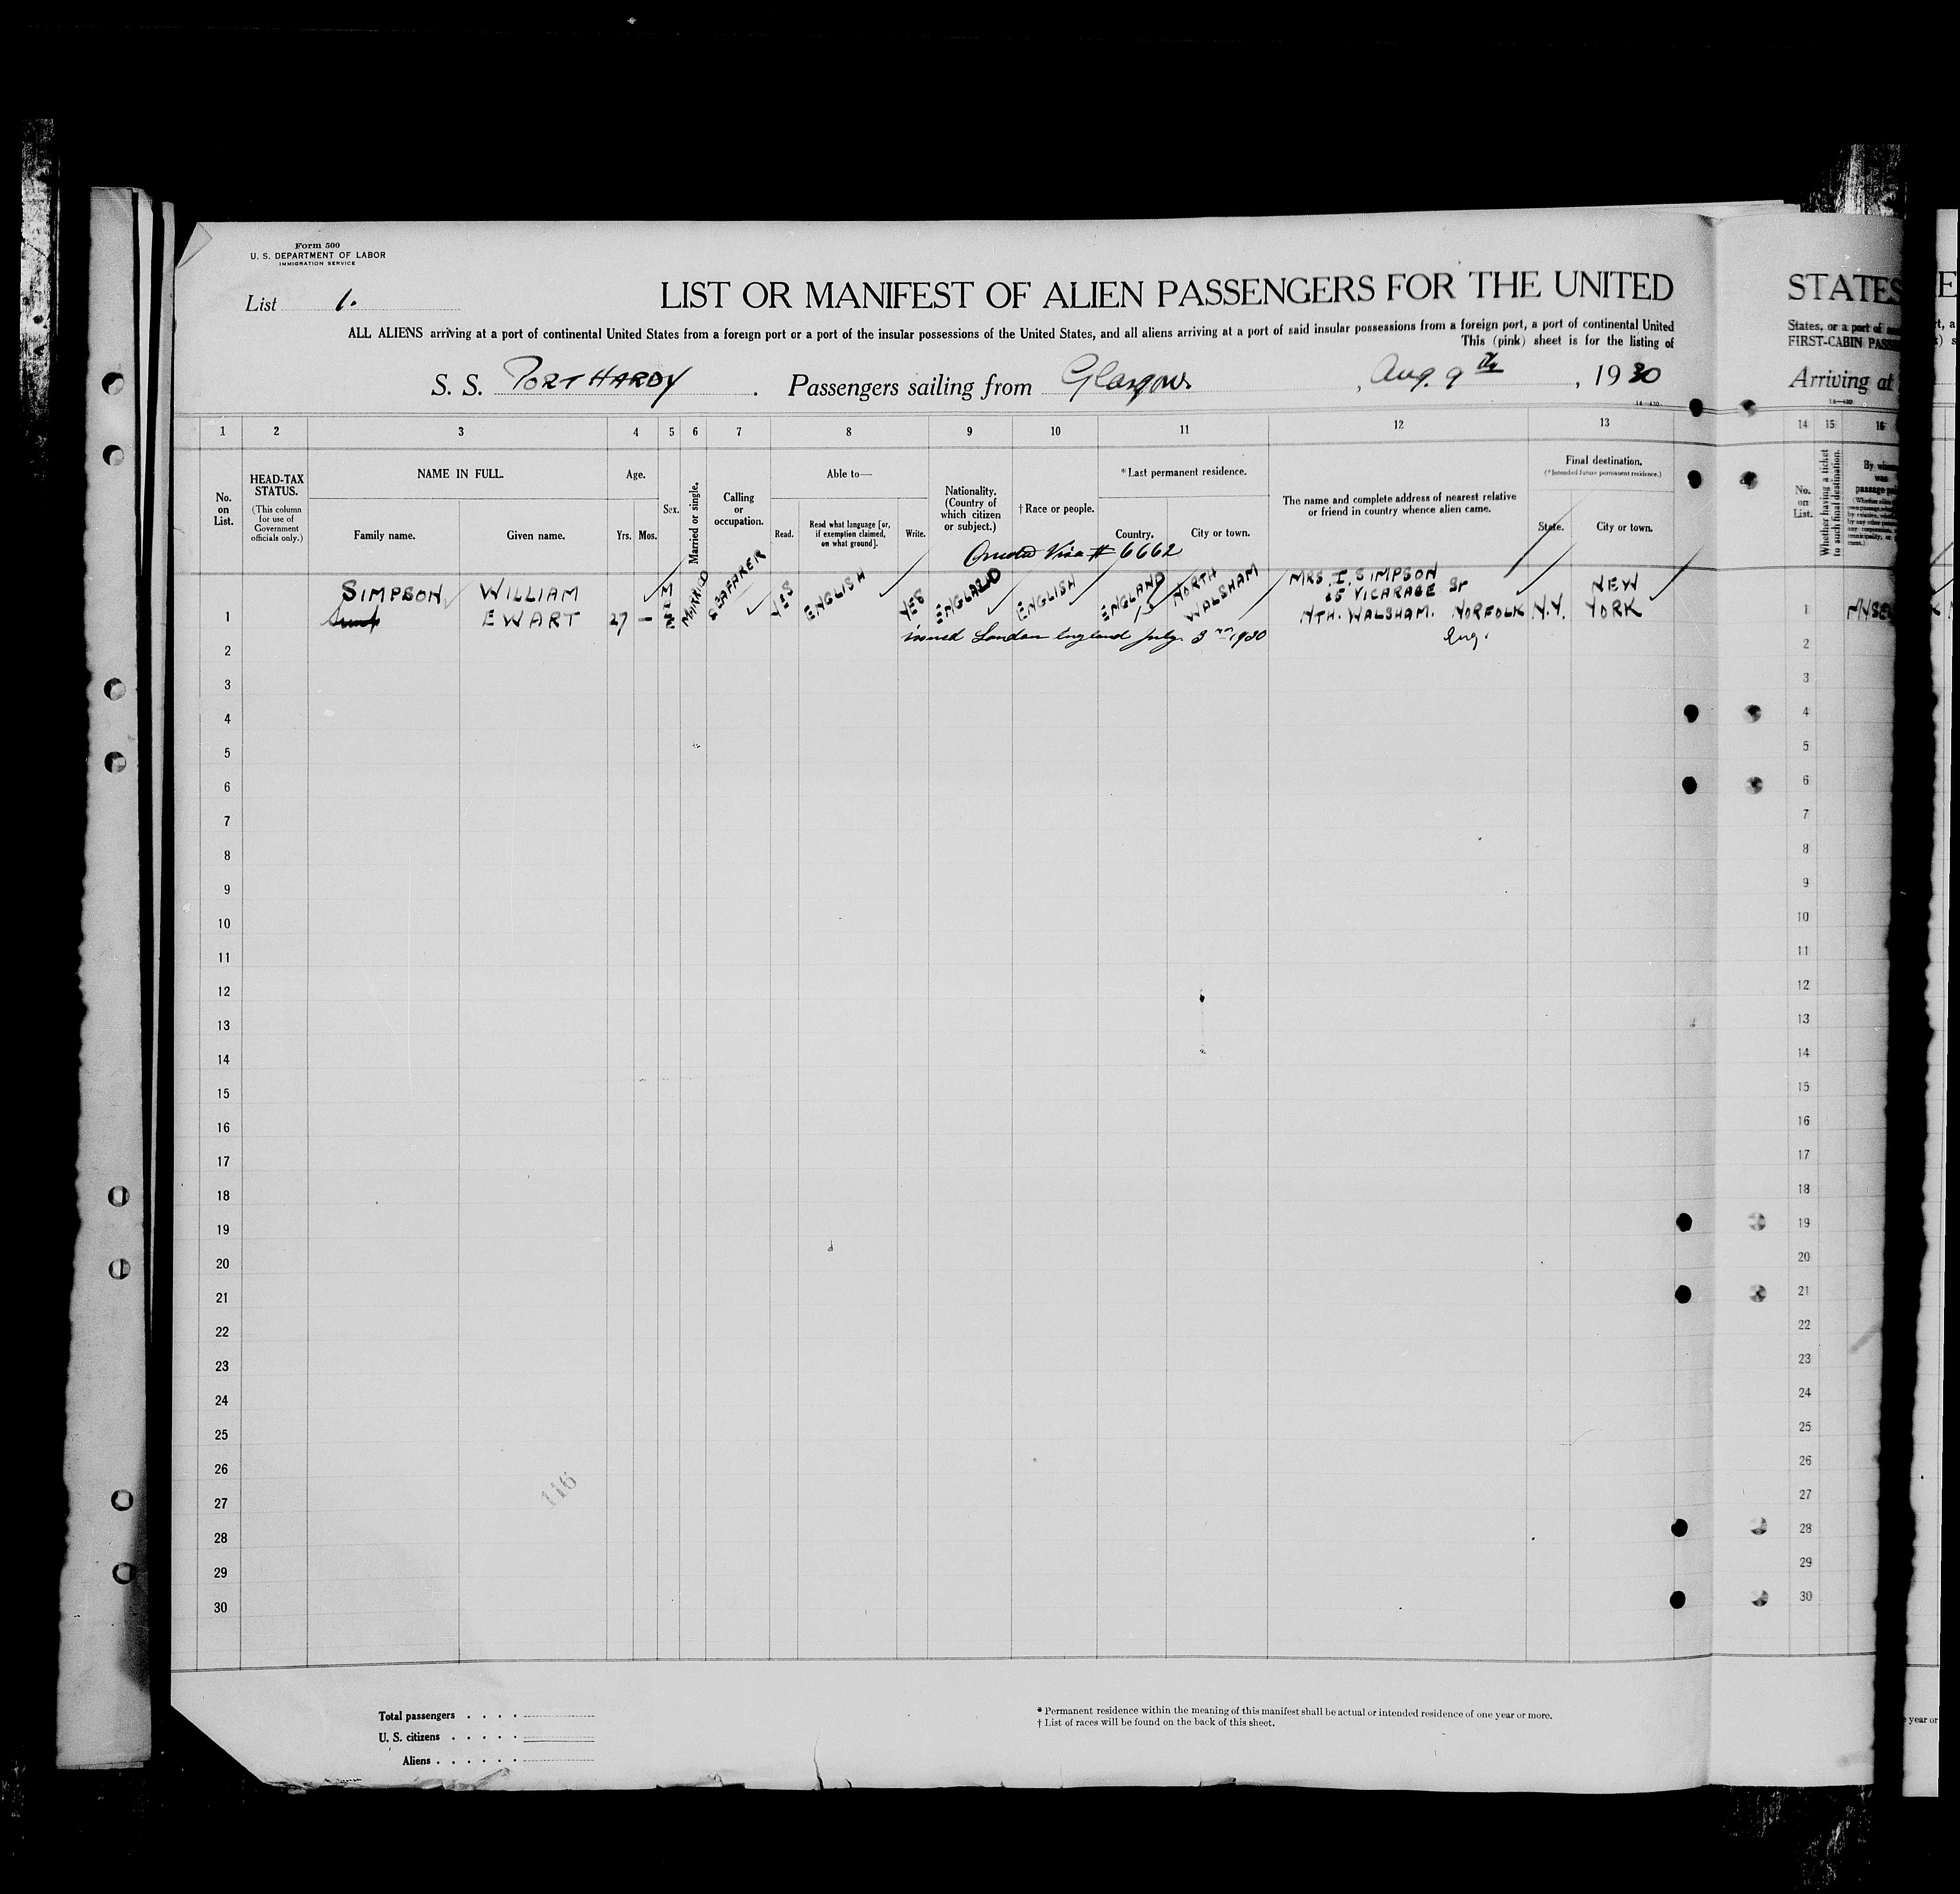 Form 500
U. S. DEPARTMENT OF LABOR
IMMIGRATION SERVICE
List 1.
LIST OR MANIFEST OF ALIEN PASSENGERS FOR THE UNITED
STATES
ALL ALIENS arriving at a port of continental United States from a foreign port or a port of the insular possessions of the United States, and all aliens arriving at a port of said insular possessions from a foreign port, a port of continental United
States, or a port of
This (pink) sheet is for the listing of
FIRST-CABIN
S. S. PORT HARDY . Passengers sailing from Glasgow , Aug. 9th , 1930
Arriving at
14—430
1 2 3 4 5 6 7 8 9 10 11 12 13 14 15 16
No. on List.
HEAD-TAX STATUS.
(This column for use of Government officials only.)
NAME IN FULL.
Family name. Given name.
Age.
Yrs. Mos.
Sex.
Married or single.
Calling or occupation.
Able to—
Read. Read what language [or, if exemption claimed, on what ground]. Write.
Nationality. (Country of which citizen or subject.)
† Race or people.
* Last permanent residence.
Country. City or town.
The name and complete address of nearest relative or friend in country whence alien came.
Final destination.
(* Intended future permanent residence.)
State. City or town.
No. on List.
Whether having a ticket to such final destination.
Visa # 6662
1 SIMPSON WILLIAM EWART 27 — M MARRIED SEAFARER YES ENGLISH YES ENGLAND ENGLISH ENGLAND NORTH WALSHAM MRS. I. SIMPSON
VICARAGE ST
NTH. WALSHAM. NORFOLK
Eng. N.Y. NEW YORK 1
issued London England July 3 1930
2 2
3 3
4 4
5 5
6 6
7 7
8 8
9 9
10 10
11 11
12 12
13 13
14 14
15 15
16 16
17 17
18 18
19 19
20 20
21 21
22 22
23 23
24 24
25 25
26 26
27 27
28 28
29 29
30 30
116
Total passengers
U. S. citizens
Aliens
* Permanent residence within the meaning of this manifest shall be actual or intended residence of one year or more.
† List of races will be found on the back of this sheet.
year or